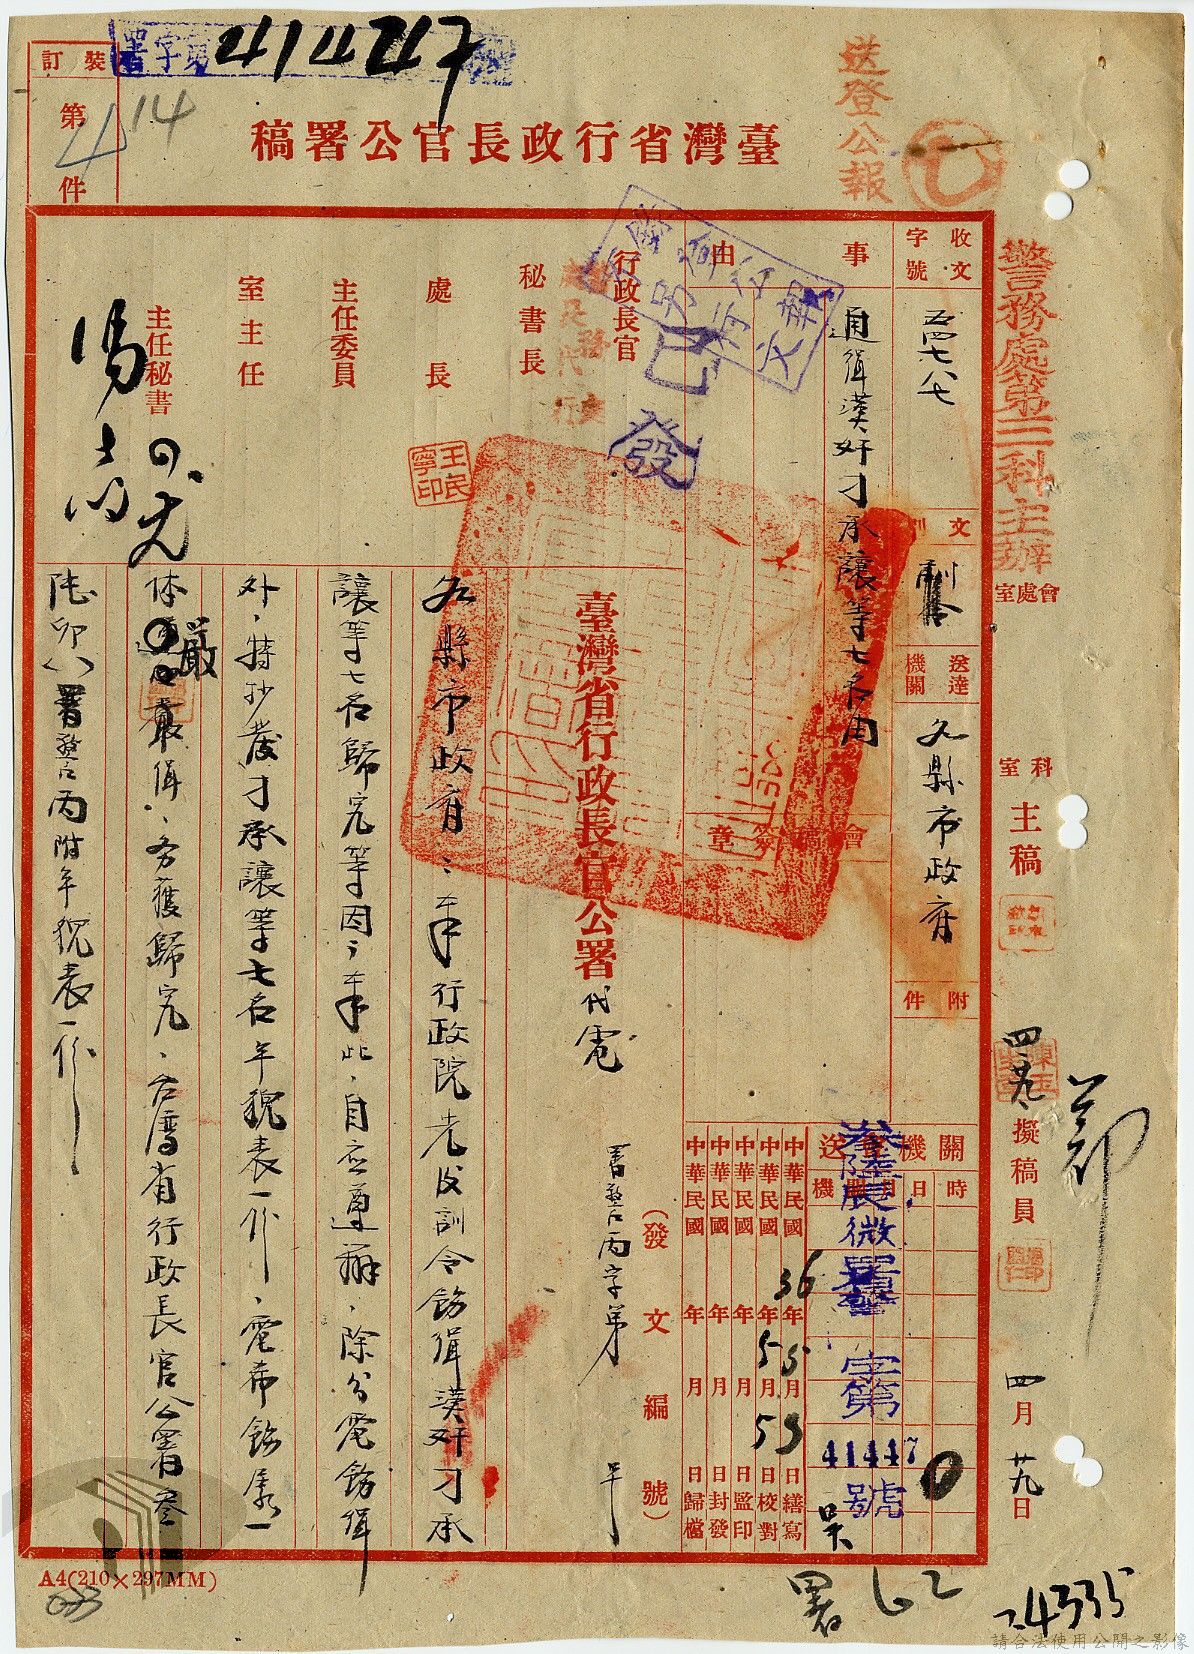 裝訂
第
件
14
署字第
41447
臺灣省行政長官公署稿
送登公報
七
警務處第三科主辦
會處室
科室
主稿
四
廿九
擬稿員
四月廿九日
收文
字號
文
別
代電
送達
機關
各縣市政府
附件
事由
通緝漢奸刁承讓等七名由
會稿簽章
行政長官
秘書長
處長
主任委員
室主任
主任秘書
王民寧印
公報
已
發
臺灣省行政長官公署代電
署警丙字第
號
(發文編號)
各縣市政府:奉行政院
訓令飭緝漢奸刁承
讓等七名歸究等因;奉此,自應遵辦,除分電飭緝
外,特抄發刁承讓等七名年貌表一份,電希飭屬一
体嚴緝,務獲歸究,台灣省行政長官公署叁
陸卯
署警丙附年貌表一份
關機送
時
日
機
中華民國36年5月5日繕寫
中華民國年5月5日校對
中華民國年月日監印
中華民國年月日封發
中華民國年月日歸檔
叁陸辰微署警
字第
41447
號
A4(210×297MM)
4335
請合法使用公開之影像